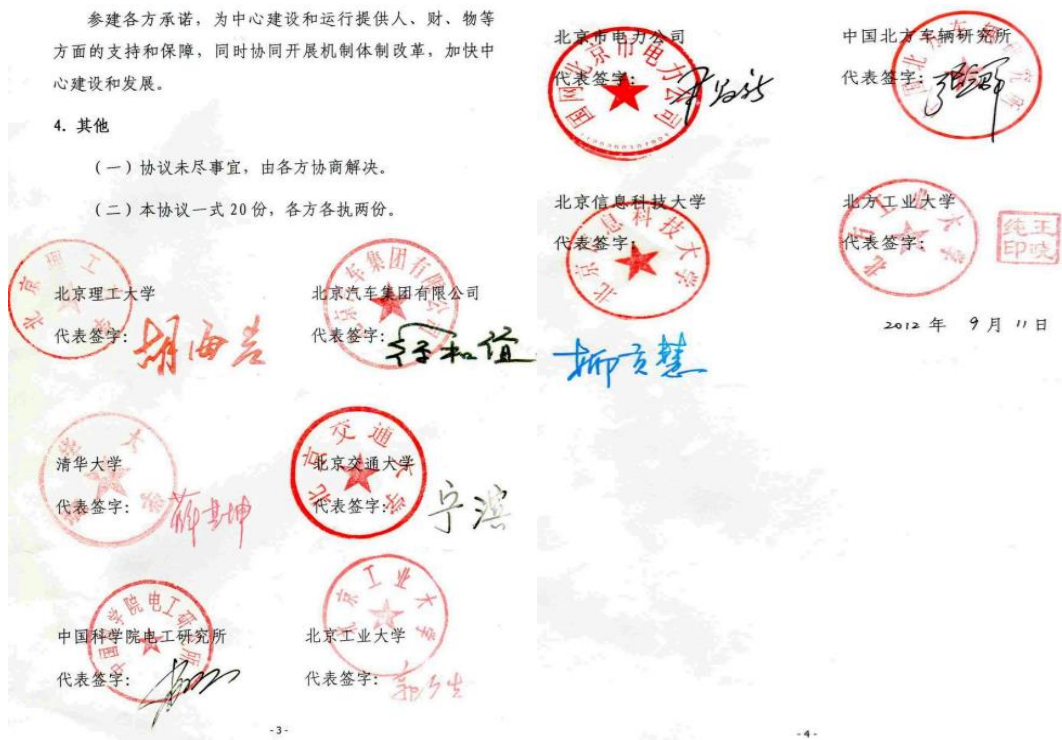 参建各方承诺，为中心建设和运行提供人、财、物等
方面的支持和保障，同时协同开展机制体制改革，加快中
心建设和发展。
4. 其他
（一）协议未尽事宜，由各方协商解决。
（二）本协议一式20份，各方各执两份。
北京理工大学
代表签字：胡海岩
北京汽车集团有限公司
代表签字：徐和谊
清华大学
代表签字：薛其坤
北京交通大学
代表签字：宁滨
中国科学院电工研究所
代表签字：
北京工业大学
代表签字：郭广生
-3-
北京市电力公司
代表签字：
国网北京市电力公司
中国北方车辆研究所
代表签字：
北京信息科技大学
代表签字：
柳贡慧
北方工业大学
代表签字：
王晓纯印
2012 年 9 月 11 日
-4-